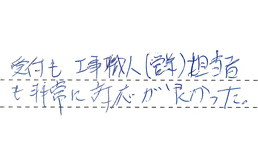 受付も 工事職人(営業)担当者
も非常に対応が良かった。